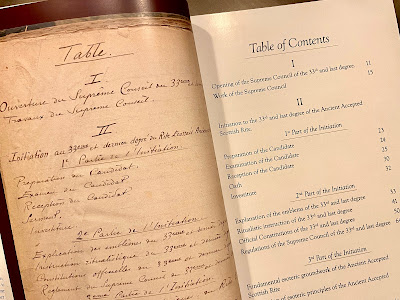 Table.
I
Ouverture du Suprême Conseil du 33ème et
Travaux du Suprême Conseil.
II
Initiation au 33ème et dernier degré du Rite Ecossais Ancien
1e Partie de l'Initiation.
Préparation du Candidat.
Examen du Candidat.
Réception du Candidat
Serment.
Investiture
2e Partie de l'Initiation.
Explication des emblèmes du 33ème et
Instruction
Constitutions officielles du 33ème et
Règlement du Suprême Conseil du 33ème
3ème Partie de l'Initiation
Table of Contents
I
Opening of the Supreme Council of the 33rd and last degree 11
Work of the Supreme Council 15
II
Initiation to the 33rd and last degree of the Ancient Accepted
Scottish Rite
1st Part of the Initiation
Preparation of the Candidate 23
Examination of the Candidate 24
Reception of the Candidate 25
Oath 30
Investiture 32
2nd Part of the Initiation
Explanation of the emblems of the 33rd and last degree 33
Ritualistic instruction of the 33rd and last degree 41
Official Constitutions of the 33rd and last degree 50
Regulations of the Supreme Council of the 33rd and last degree 66
3rd Part of the Initiation
Fundamental esoteric groundwork of the Ancient Accepted
Scottish Rite
of esoteric principles of the Ancient Accepted